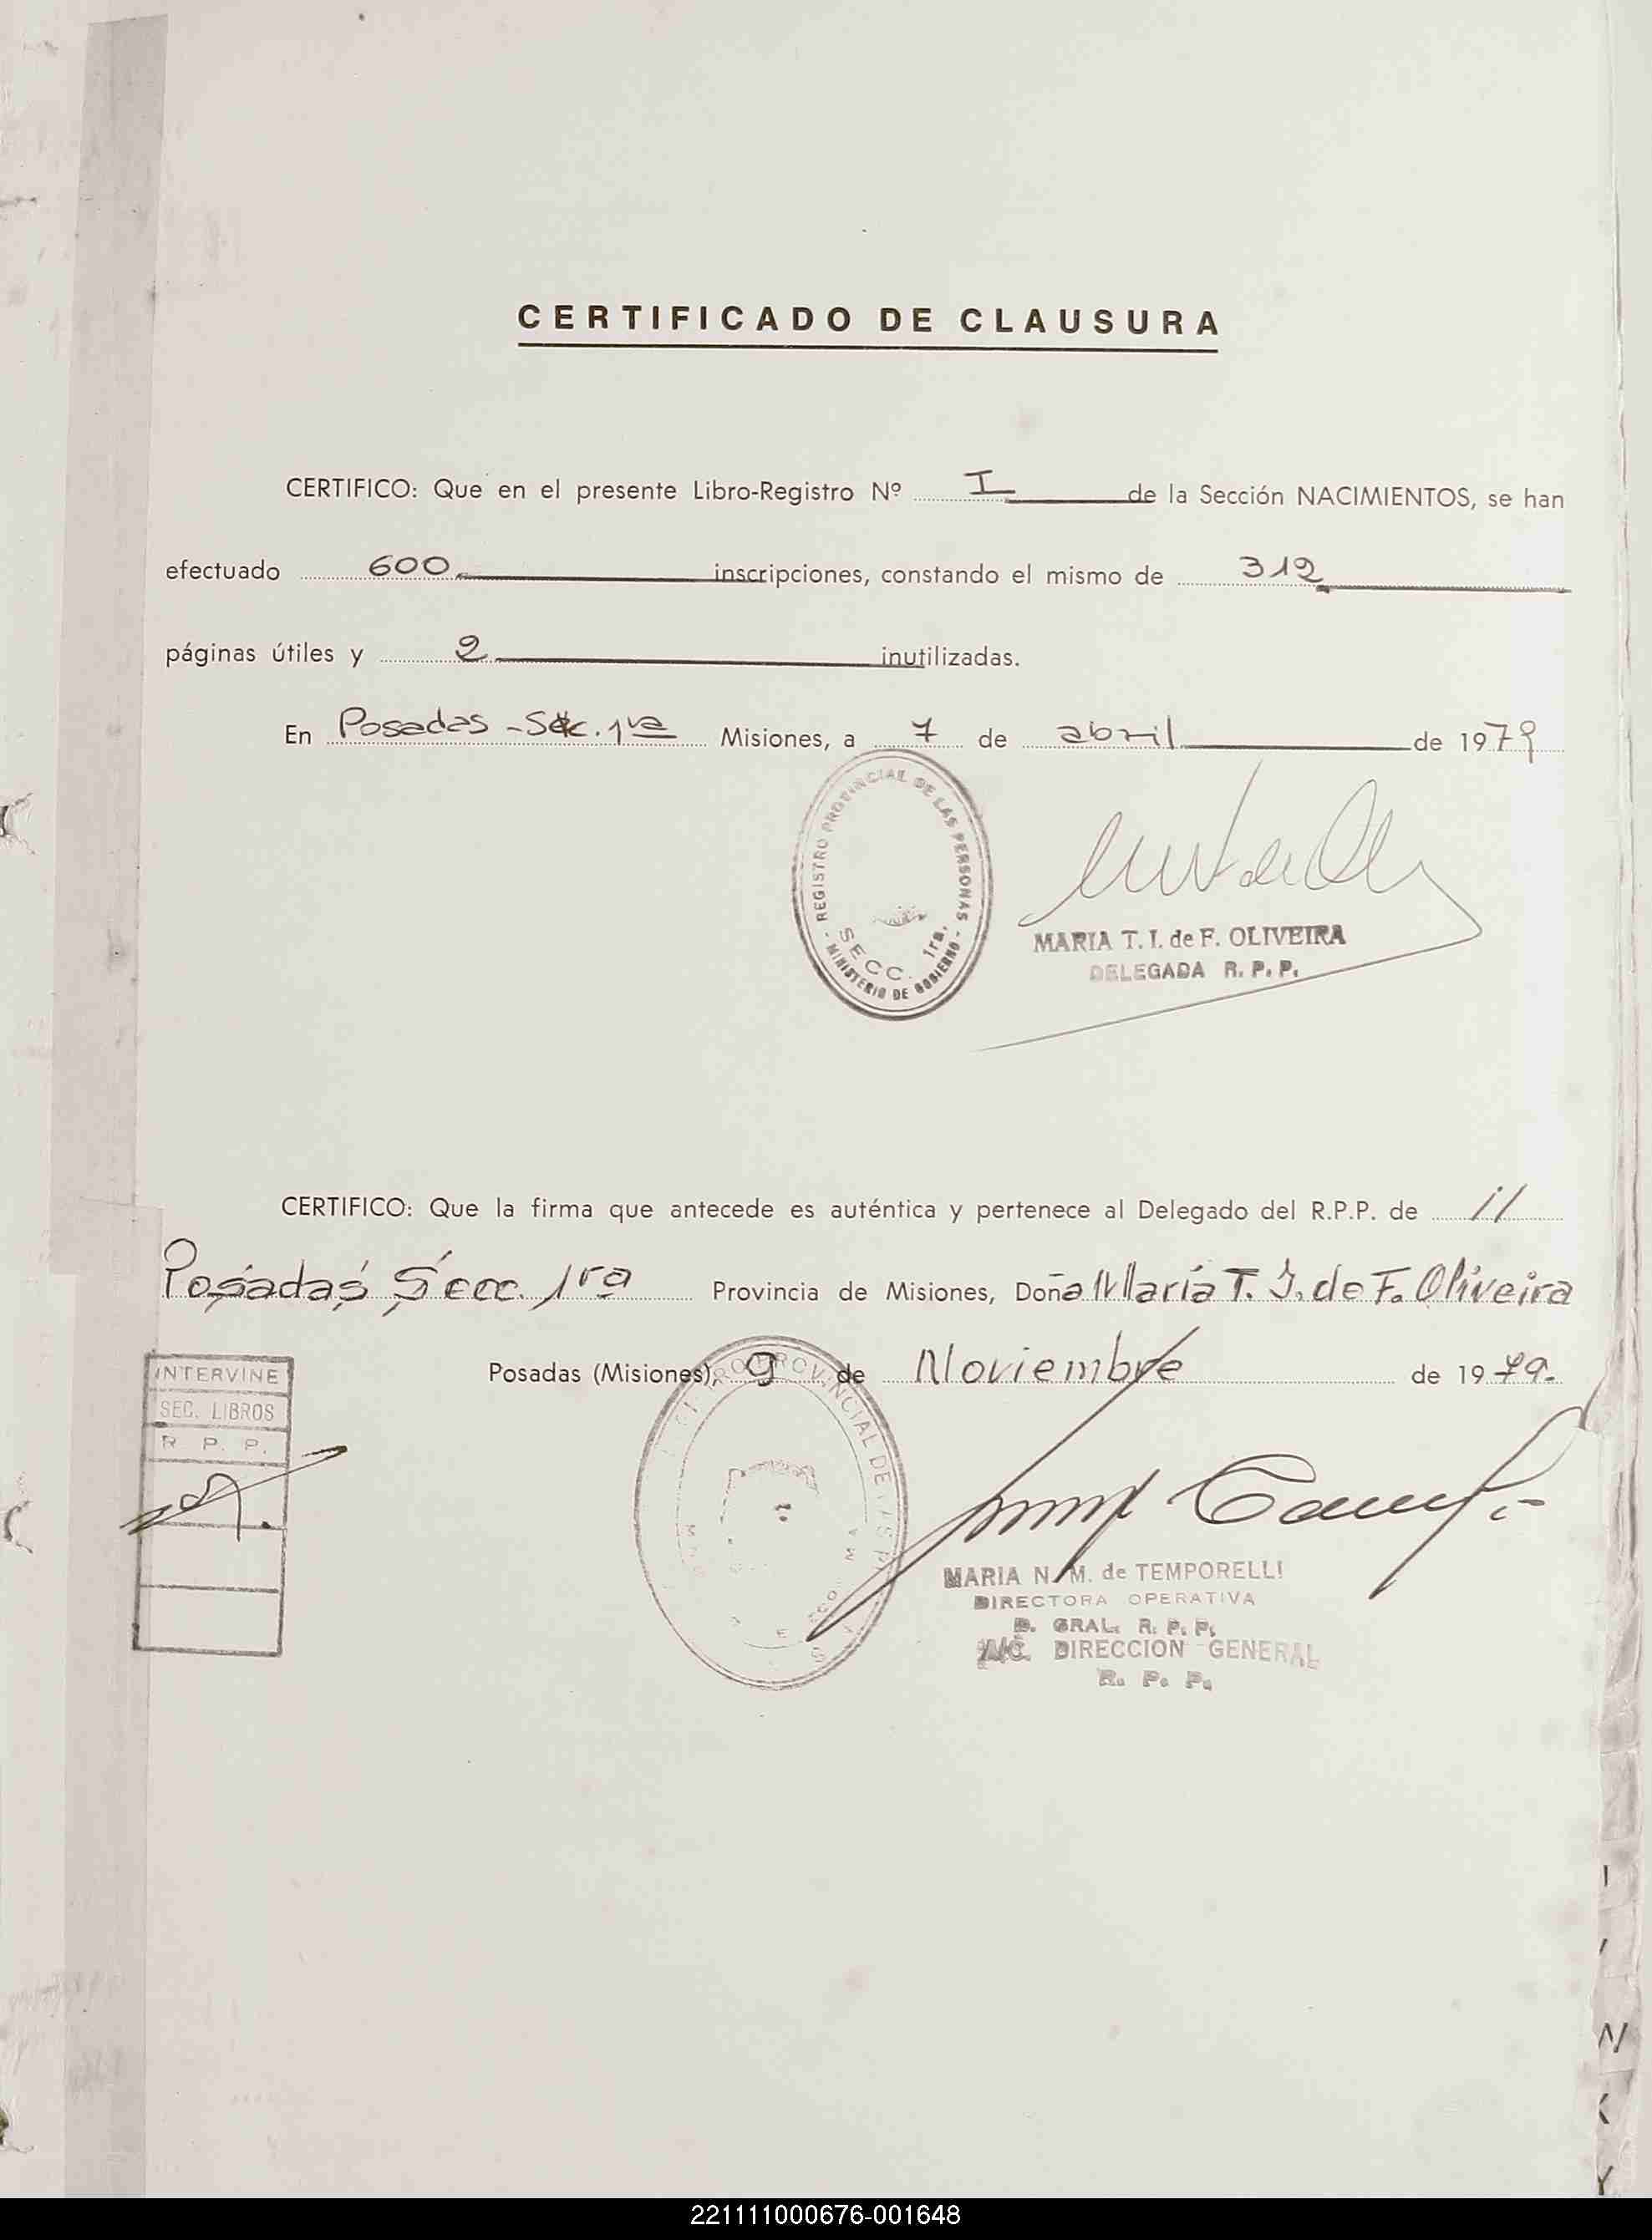 CERTIFICADO DE CLAUSURA
CERTIFICO: Que en el presente Libro-Registro Nº I de la Sección NACIMIENTOS, se han
efectuado 600 inscripciones, constando el mismo de 312
páginas útiles y 2 inutilizadas.
En Posadas - Sec. 1ra Misiones, a 7 de abril de 1979
REGISTRO PROVINCIAL DE LAS PERSONAS
SECC. 1ra.
- MINISTERIO DE GOBIERNO -
MARIA T. I. de F. OLIVEIRA
DELEGADA R. P. P.
CERTIFICO: Que la firma que antecede es auténtica y pertenece al Delegado del R.P.P. de
Posadas Secc. 1ra Provincia de Misiones, Doña María T. I. de F. Oliveira
Posadas (Misiones), 9 de Noviembre de 1979.
INTERVINE
SEC. LIBROS
R. P. P.
MARIA N. M. de TEMPORELLI
DIRECTORA OPERATIVA
D. GRAL. R. P. P.
A/C. DIRECCION GENERAL
R. P. P.
221111000676-001648